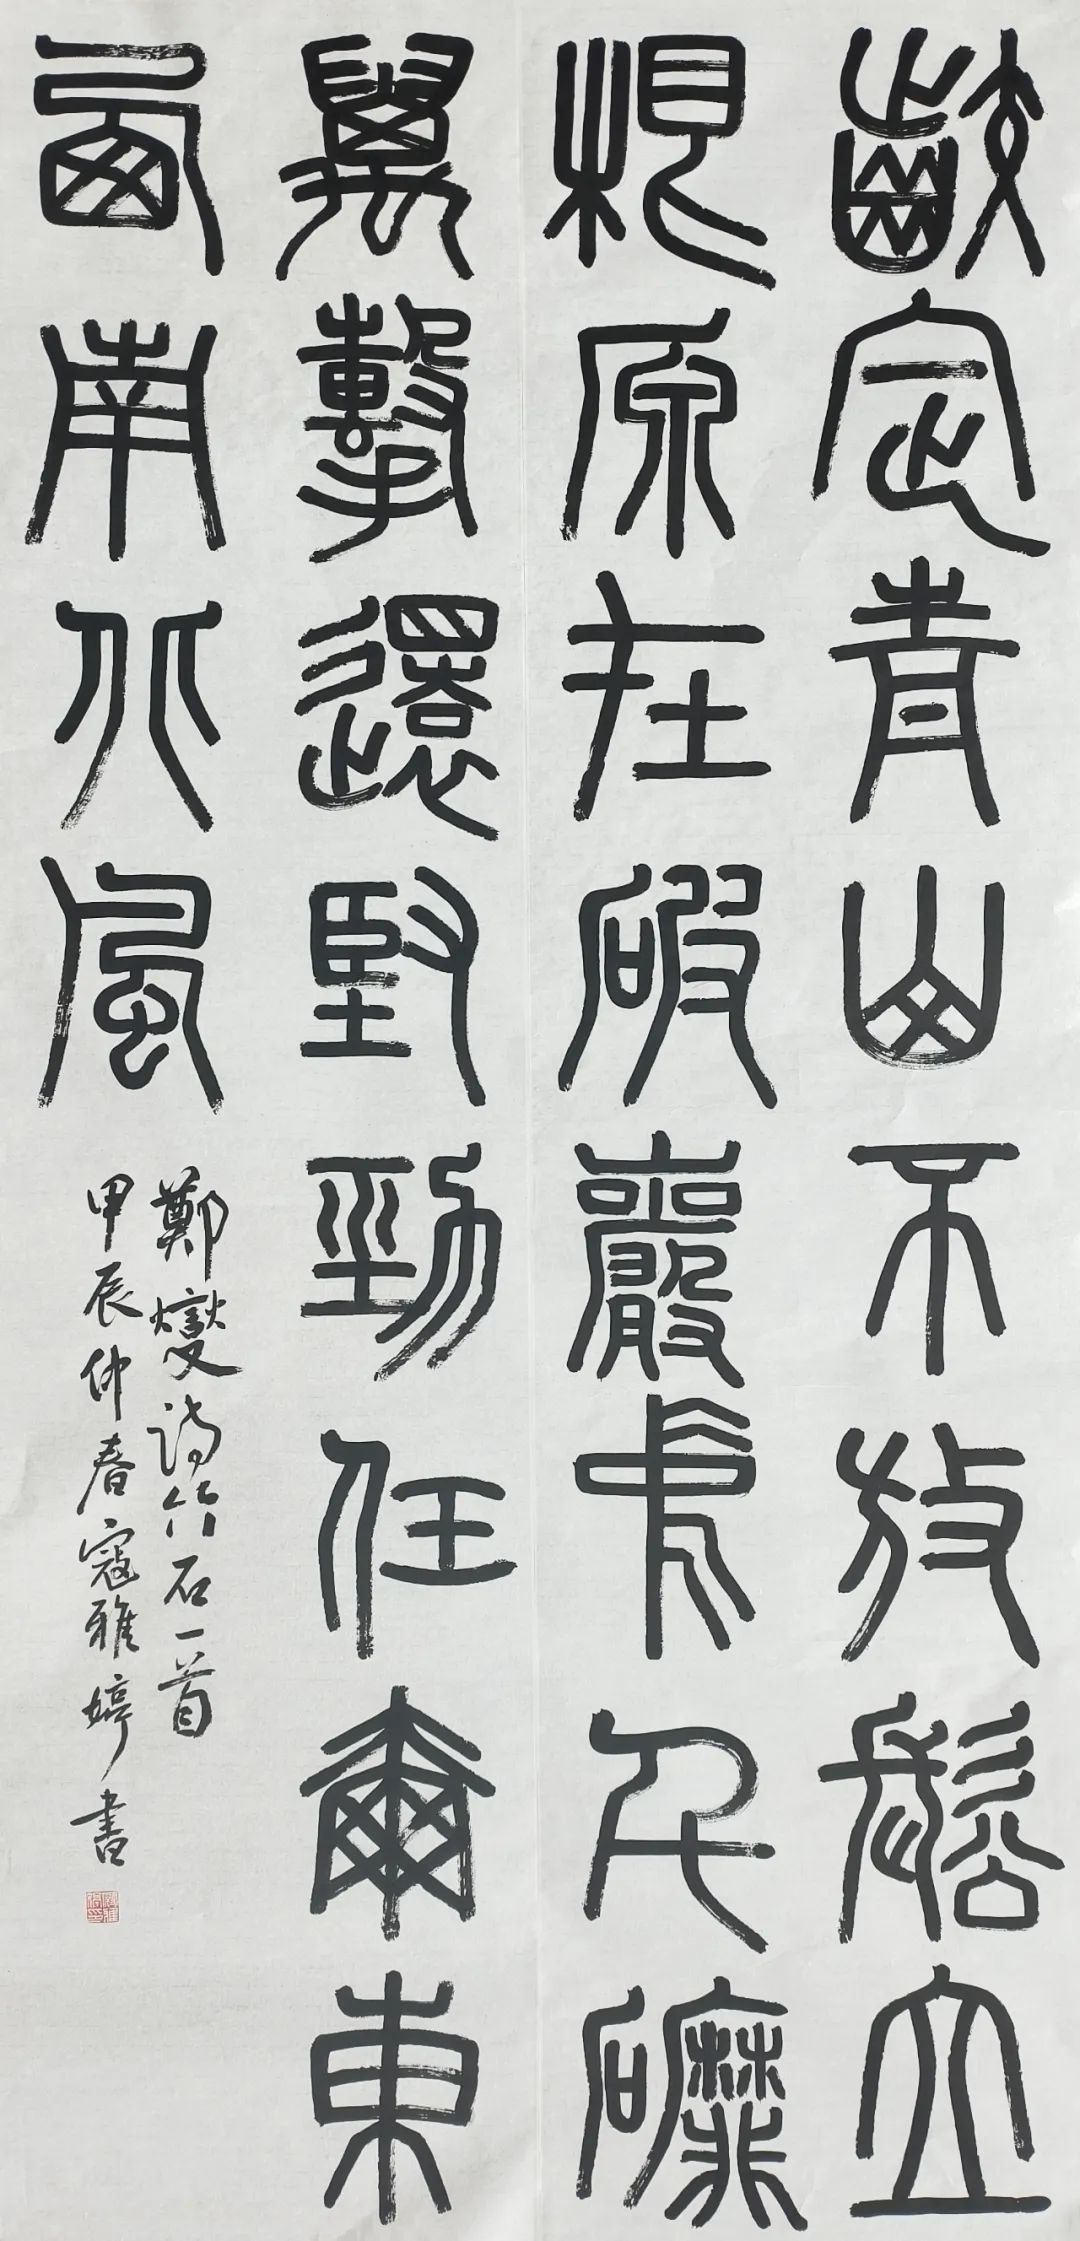 齩定青山不放鬆立
根原在破巖中千䃺
萬擊還堅勁任爾東
西南北風
鄭燮詩竹石一首
甲辰仲春寇雅婷書